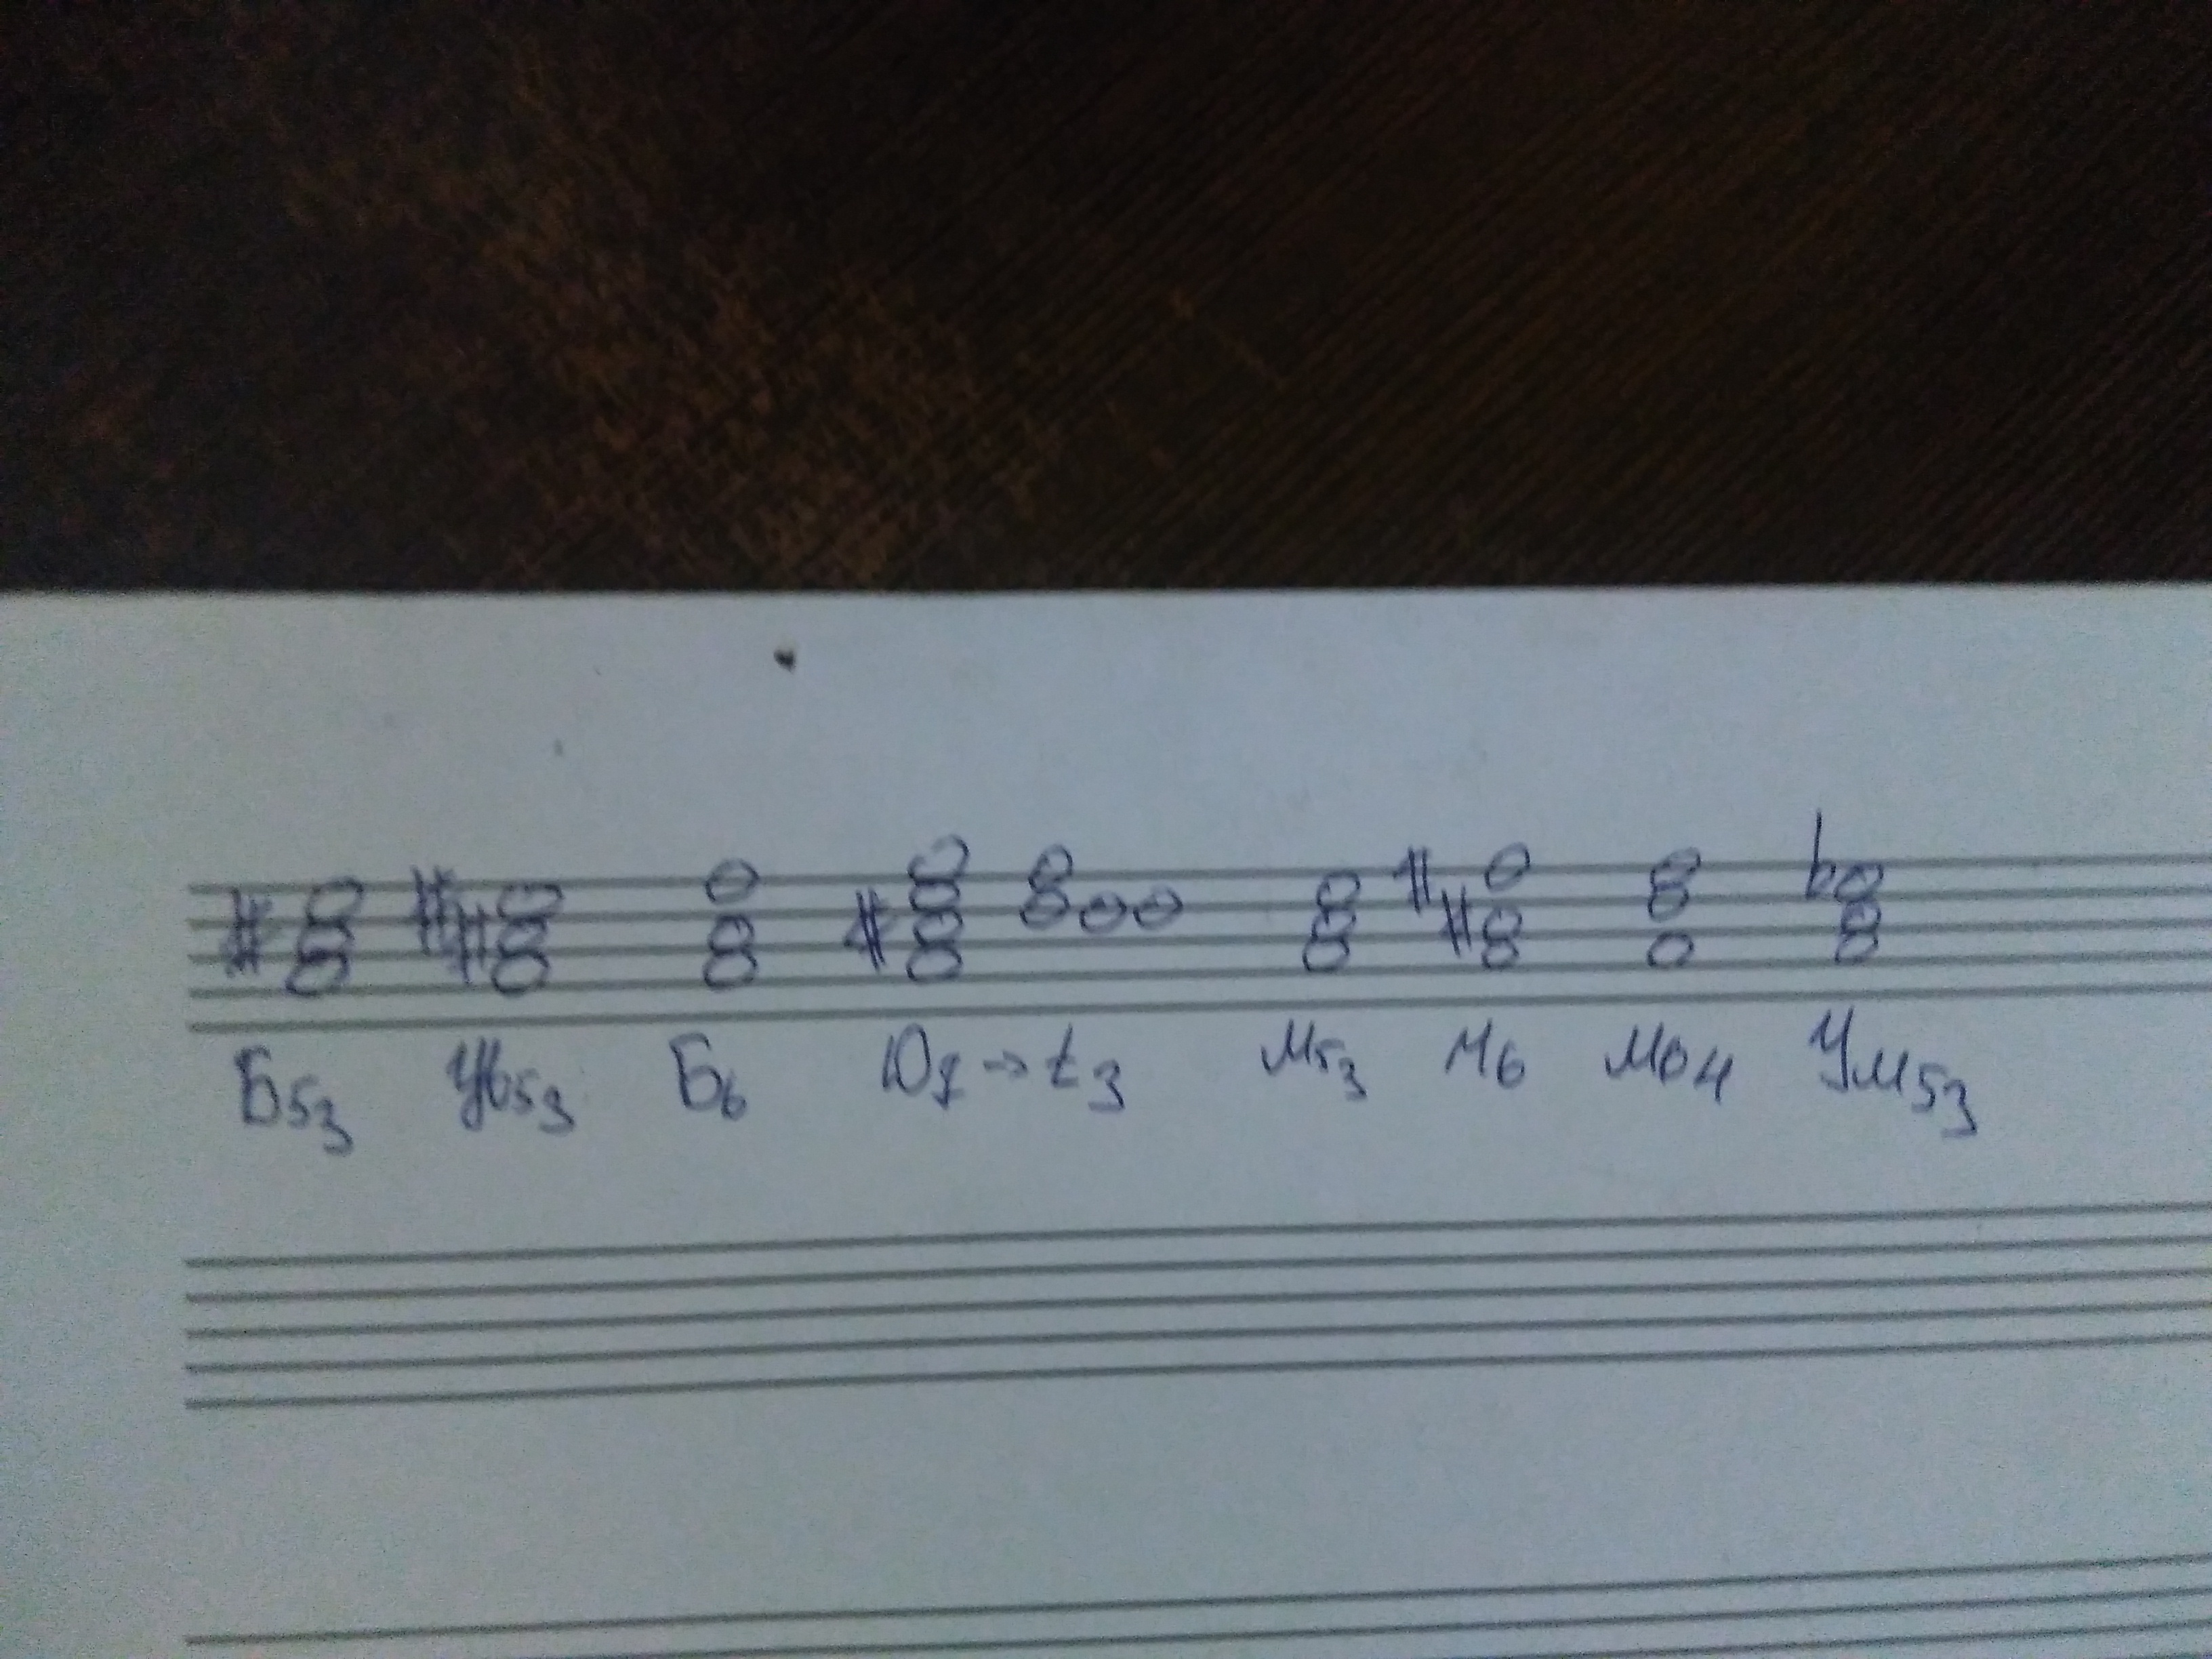 Б53 Ув53 Б6 D7 → t3 М53 М6 М64 Ум53